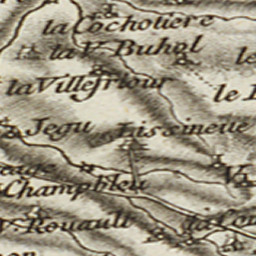 la Cochotiere
la V. Buhol
le
la Villefriour
le
Jegu
Lissineue
Champbleu
V. Rouault
la Cou